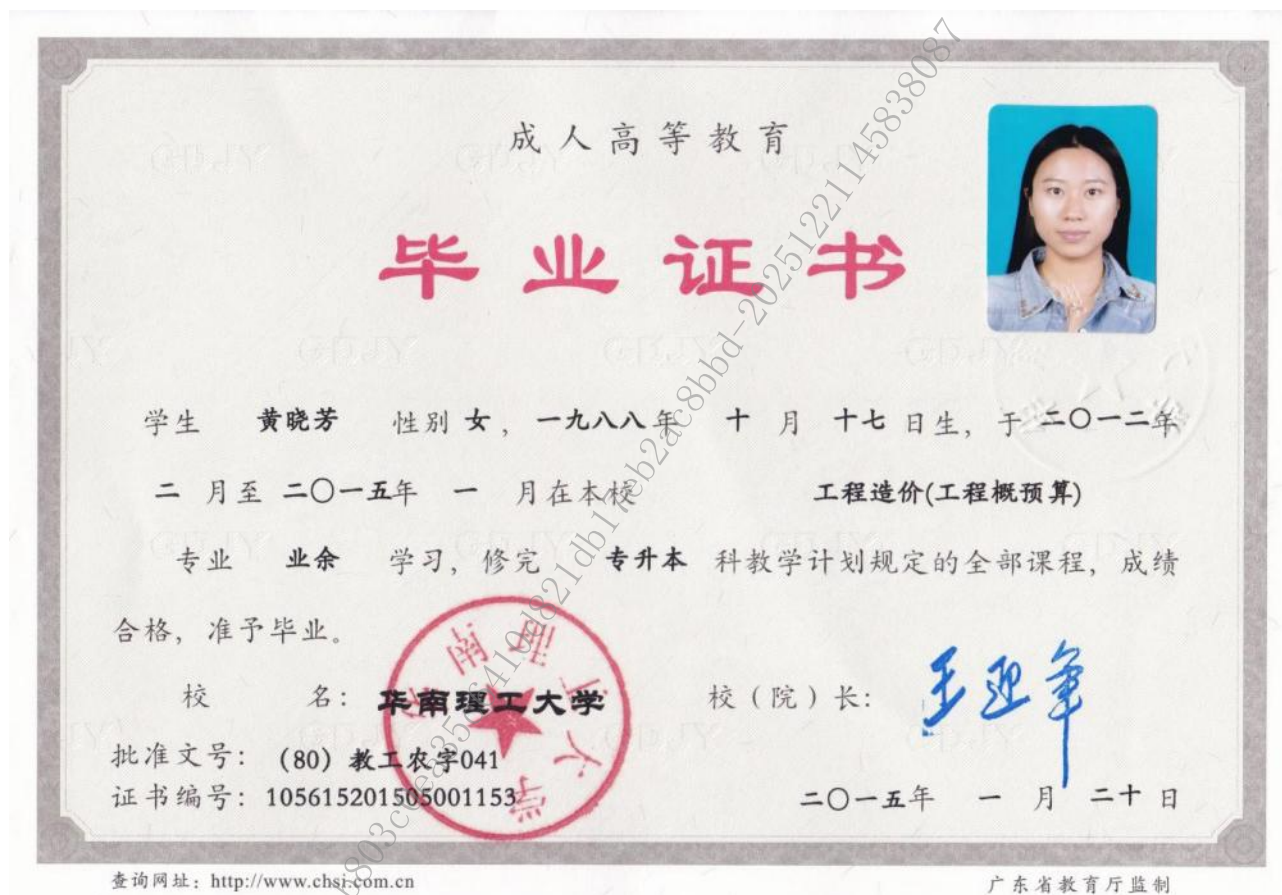 成人高等教育
毕业证书
学生 黄晓芳 性别 女，一九八八年 十 月 十七 日生，于 二〇一二年
二 月至 二〇一五年 一 月在本校 工程造价(工程概预算)
专业 业余 学习，修完 专升本 科教学计划规定的全部课程，成绩
合格，准予毕业。
校 名：华南理工大学 校（院）长：王迎军
批准文号：(80) 教工农字041
证书编号：105615201505001153 二〇一五年 一 月 二十 日
华南理工大学
查询网址：http://www.chsi.com.cn 广东省教育厅监制